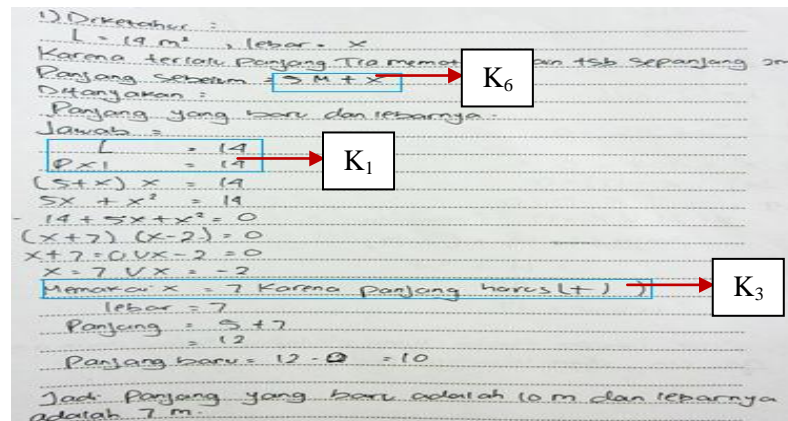 1) Diketahui :
L = 14 m² , lebar = x
Karena terlalu panjang Tia memot an tsb sepanjang 2m
Panjang sebelum = 5 M + x K₆
Ditanyakan :
Panjang yang baru dan lebarnya .
Jawab =
L = 14
P x l = 14 K₁
(5+x) x = 14
5x + x² = 14
- 14 + 5x + x² = 0
(x+7) (x-2) = 0
x+7 = 0 V x - 2 = 0
x = 7 V x = -2
Memakai x = 7 karena panjang harus (+) ) K₃
lebar = 7
Panjang = 5 + 7
= 12
Panjang baru = 12 - 2 = 10
Jadi panjang yang baru adalah 10 m dan lebarnya
adalah 7 m.